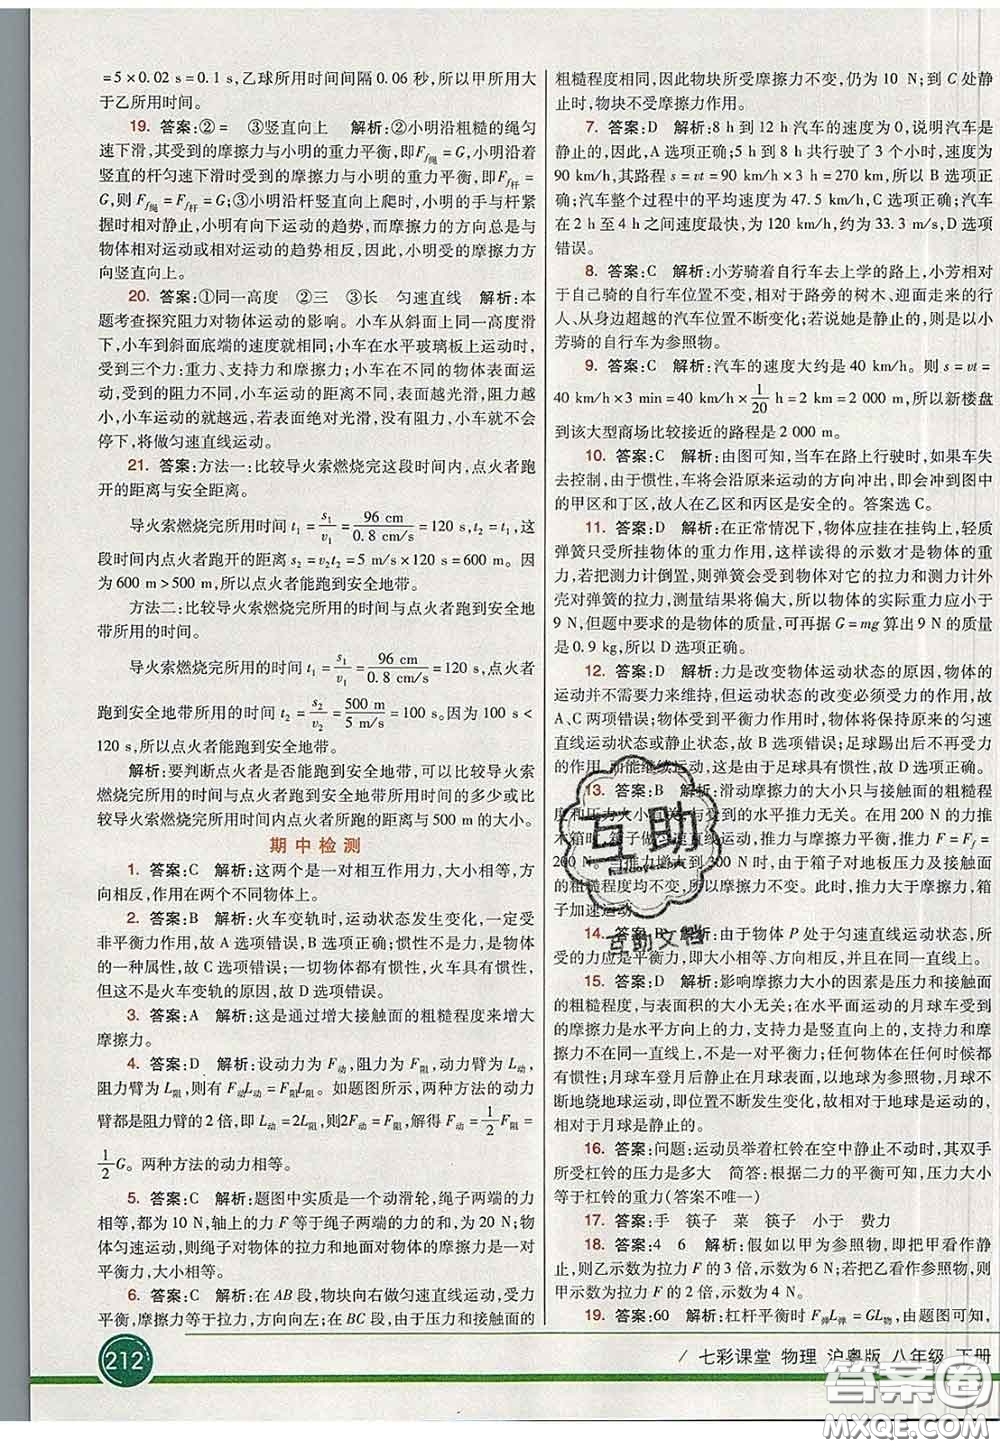 =5×0.02 s=0.1 s,乙球所用时间间隔0.06秒,所以甲所用大
于乙所用时间。
19. 答案:②= ③竖直向上 解析:②小明沿粗糙的绳匀
速下滑,其受到的摩擦力与小明的重力平衡,即Ff绳=G,小明沿着
竖直的杆匀速下滑时受到的摩擦力与小明的重力平衡,即Ff杆=
G,则 Ff绳=Ff杆=G;③小明沿杆竖直向上爬时,小明的手与杆紧
握时相对静止,小明有向下运动的趋势,而摩擦力的方向总是与
物体相对运动或相对运动的趋势相反,因此,小明受的摩擦力方
向竖直向上。
20. 答案:①同一高度 ②三 ③长 匀速直线 解析:本
题考查探究阻力对物体运动的影响。小车从斜面上同一高度滑
下,小车到斜面底端的速度是相同的;小车在水平玻璃板上运动时,
受到三个力:重力、支持力和摩擦力;小车在不同的物体表面运
动,受到的摩擦力不同,小车运动的距离不同,表面越光滑,阻力越
小,小车运动的就越远,若表面绝对光滑,没有阻力,小车就不会
停下,将做匀速直线运动。
21. 答案:方法一:比较导火索燃烧完这段时间内,点火者跑
开的距离与安全距离。
导火索燃烧完所用时间 t1=s1/v1=96 cm/0.8 cm/s=120 s,t2=t1,这
段时间内点火者跑开的距离 s2=v2t2=5 m/s×120 s=600 m。因
为600 m>500 m,所以点火者能跑到安全地带。
方法二:比较导火索燃烧完所用的时间与点火者跑到安全地
带所用的时间。
导火索燃烧完所用的时间 t1=s1/v1=96 cm/0.8 cm/s=120 s,点火者
跑到安全地带所用的时间 t2=s2/v2=500 m/5 m/s=100 s。因为100 s<
120 s,所以点火者能跑到安全地带。
解析:要判断点火者是否能跑到安全地带,可以比较导火索
燃烧完所用的时间与点火者跑到安全地带的时间的多少或比
较导火索燃烧完所用时间内点火者所跑的距离与500 m的大小。
期中检测
1. 答案:C 解析:这两个是一对相互作用力,大小相等,
方向相反,作用在两个不同物体上。
2. 答案:B 解析:火车变轨时,运动状态发生变化,一定受
非平衡力作用,故 A 选项错误,B 选项正确;惯性不是力,是物体
的一种属性,故 C 选项错误;一切物体都有惯性,火车具有惯性,
但不是火车变轨的原因,故 D 选项错误。
3. 答案:A 解析:这是通过增大接触面的粗糙程度来增大
摩擦力。
4. 答案:D 解析:设动力为F动,阻力为F阻,动力臂为L动,
阻力臂为L阻,则有 F动L动=F阻L阻。如题图所示,两种方法的动力
臂都是阻力臂的2倍,即L动=2L阻,所以2F动=F阻,解得F动=1/2F阻=
1/2G。两种方法的动力相等。
5. 答案:C 解析:题图中实质是一个动滑轮,绳子两端的力
相等,都为10 N,轴上的力 F 等于绳子两端的力的和,为20 N;物
体匀速运动,则绳子对物体的拉力和地面对物体的摩擦力是一对
平衡力,大小相等。
6. 答案:C 解析:在AB段,物块向右做匀速直线运动,受力
平衡,摩擦力等于拉力,方向向左;在BC段,由于压力和接触面的
粗糙程度相同,因此物块所受摩擦力不变,仍为10 N;到C处静
止时,物块不受摩擦力作用。
7. 答案:D 解析:8 h到12 h汽车的速度为0,说明汽车是
静止的,因此,A选项正确;5 h到8 h共行驶了3个小时,速度为
90 km/h,其路程 s=vt=90 km/h×3 h=270 km,所以B选项正
确;汽车整个过程中的平均速度为47.5 km/h,C选项正确;汽车
在2 h至4 h速度最快,为120 km/h,约为33.3 m/s,D选项
错误。
8. 答案:C 解析:小芳骑着自行车去上学的路上,小芳相对
于自己骑的自行车位置不变,相对于路旁的树木、迎面走来的行
人、从身边超越的汽车位置不断变化;若说她是静止的,则是以小
芳骑的自行车为参照物。
9. 答案:C 解析:汽车的速度大约是40 km/h。则 s=vt=
40 km/h×3 min=40 km/h×1/20 h=2 km=2 000 m,所以新楼盘
到该大型商场比较接近的路程是2 000 m。
10. 答案:C 解析:由图可知,当车在路上行驶时,如果车失
去控制,由于惯性,车将会沿原来运动的方向冲出,即会冲到图中
的甲区和丁区,故人在乙区和丙区是安全的。答案选C。
11. 答案:D 解析:在正常情况下,物体应挂在挂钩上,轻质
弹簧只受所挂物体的重力作用,这样读得的示数才是物体的重
力。若把测力计倒置,则弹簧会受到物体对它的拉力和测力计外
壳对弹簧的拉力,测量结果将偏大,所以物体的实际重力应小于
9 N,但题中要求的是物体的质量,可再根据G=mg算出9 N的质量
是0.9 kg,所以D选项正确。
12. 答案:D 解析:力是改变物体运动状态的原因,物体的
运动并不需要力来维持,但运动状态的改变必须受力的作用,故
A、C两项错误;物体受到平衡力作用时,物体将保持原来的匀速
直线运动状态或静止状态,故 B 选项错误;足球踢出后不受力
的作用,而能继续运动,是由于足球具有惯性,故 D 选项正确。
13. 答案:B 解析:滑动摩擦力的大小只与接触面的粗糙程
度和压力大小有关,与受到的水平推力无关。在用200 N的力推
木箱时,箱子做匀速直线运动,推力与摩擦力平衡,推力 F=Ff=
200 N。当推力增大到300 N时,由于箱子对地板压力及接触面
的粗糙程度均不变,所以摩擦力不变。此时,推力大于摩擦力,箱
子加速运动。
14. 答案:B 解析:由于物体 P 处于匀速直线运动状态,所
受的力应是平衡力,即大小相等、方向相反,且作用在同一直线上。
15. 答案:D 解析:影响摩擦力大小的因素是压力和接触面
的粗糙程度,与表面积的大小无关;在水平面运动的月球车受到
的摩擦力是水平方向上的力,支持力是竖直方向上的力,两个力
不在同一直线上,不是一对平衡力;任何物体在任何情况下都有
惯性;月球车登月后静止在月球表面,以地球为参照物,月球不
断地绕地球运动,即位置不断发生变化,故相对于地球是运动的,
相对于月球是静止的。
16. 答案:问题:运动员举着杠铃在空中静止不动时,其双手
所受杠铃的压力是多大 简答:根据二力的平衡可知,压力大小
等于杠铃的重力(答案不唯一)
17. 答案:手 筷子 菜 筷子 小于 费力
18. 答案:4 6 解析:假如以甲为参照物,即把甲看作静
止,则乙示数为拉力 F 的3倍,示数为6 N;若把乙看作参照物,则
甲示数为拉力 F 的2倍,示数为4 N。
19. 答案:60 解析:杠杆平衡时 F弹L弹=GL物,由题图可知,
212
七彩课堂 物理 沪粤版 八年级 下册
互助
互助文档
答案圈
MXQE.COM